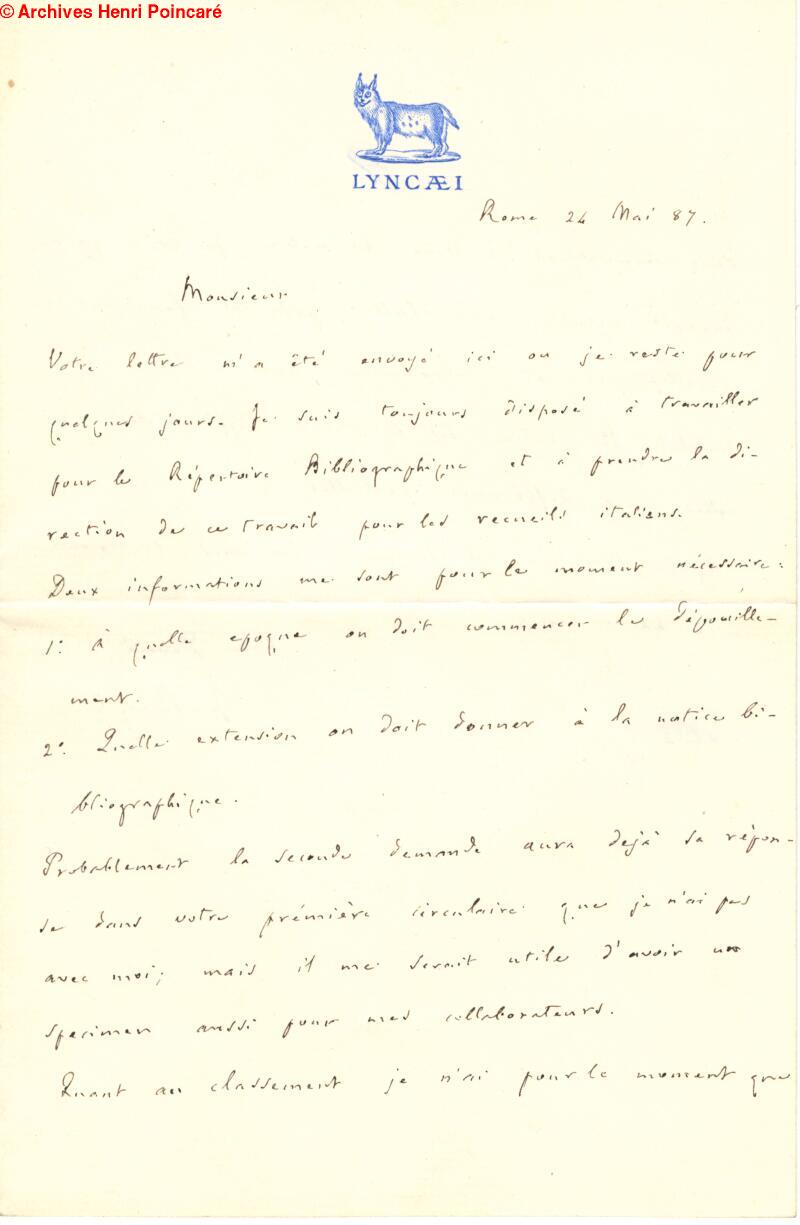 © Archives Henri Poincaré
LYNCÆI
Rome 24 Mai 87.
Monsieur
Votre lettre m'a été envoyé ici ou je reste pour
quelques jours. Je suis toujours disposé à travailler
pour le Répertoire Bibliographique et à prendre la di-
rection de ce travail pour les recueils italiens.
Deux informations me sont pour le moment nécessaire:
1.° À quelle epoque on doit commencer le dépouille-
ment.
2.° Quelle extension on doit donner à la notice bi-
bliographique.
Probablement la seconde demande aura dejà sa répon-
se dans votre prémière circulaire que je n'ai pas
avec moi; mais il me serait utile d'avoir un
specimen aussi pour mes collaborateurs.
Quant au classement je n'ai pour le moment que